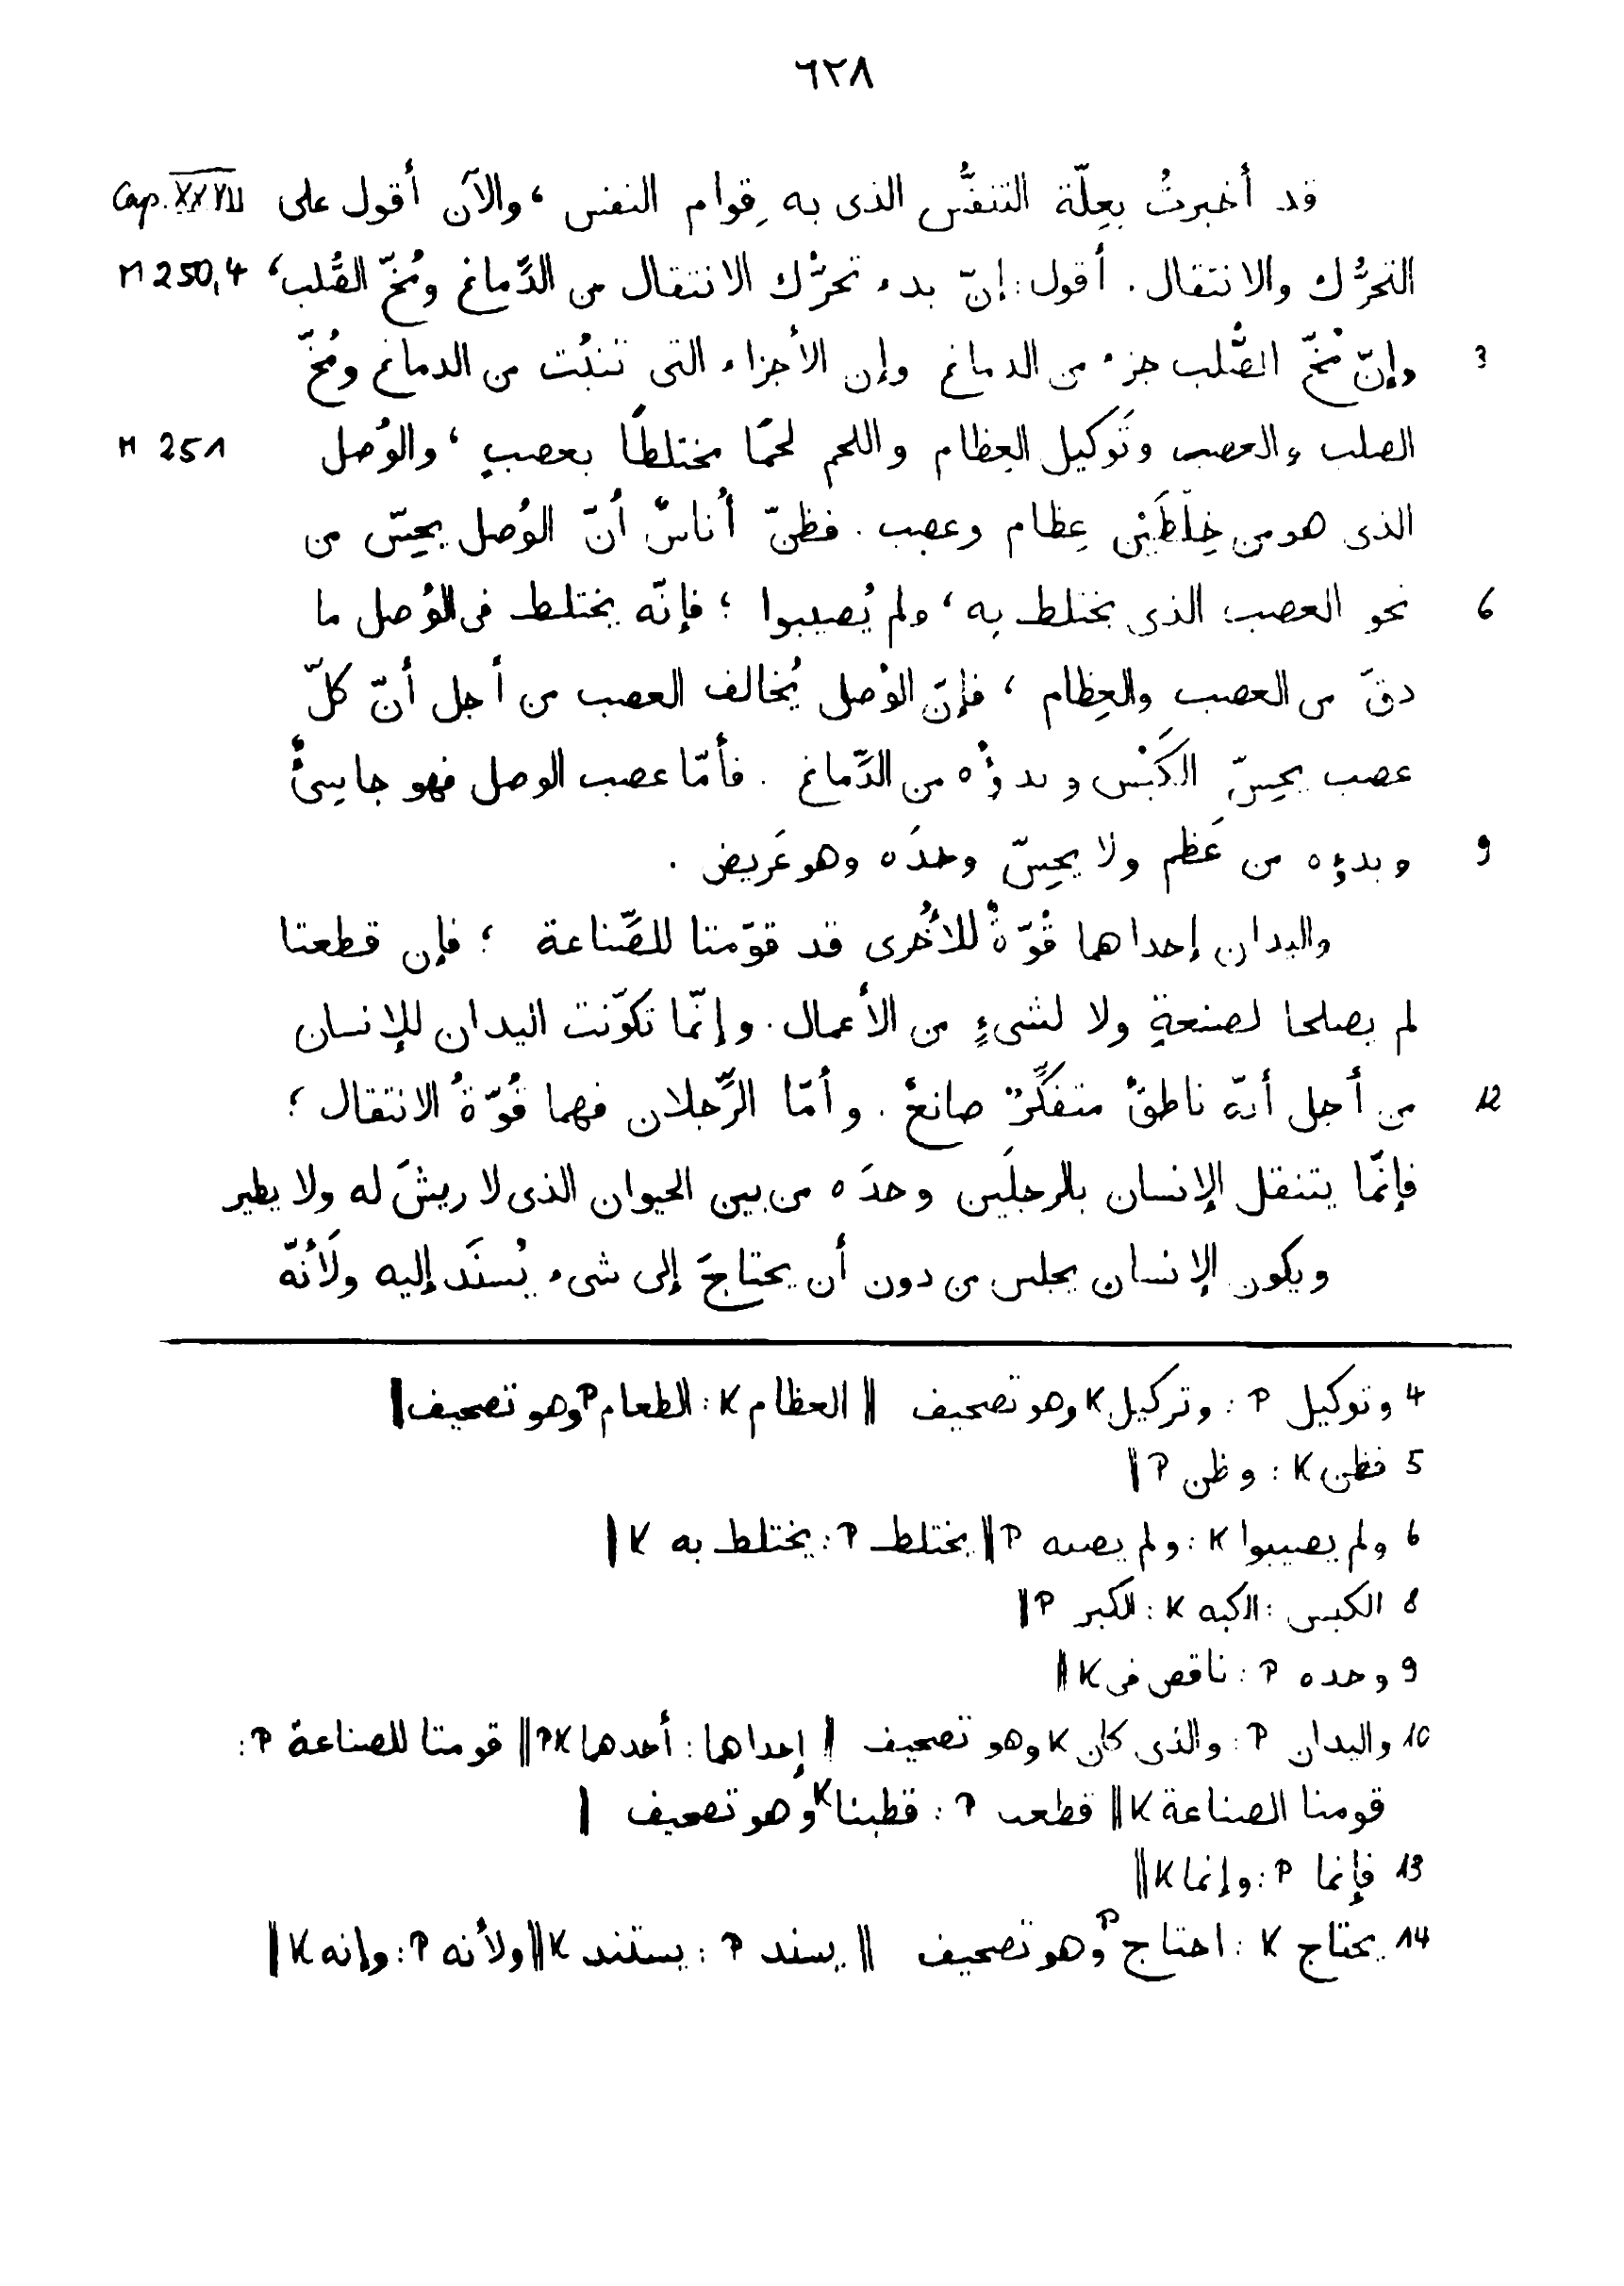 ٦٢٨
قد أخبرتُ بعِلّة التنفُّس الذى به قِوام النفس، والآن أقول على Cap. XXVII
التحرُّك والانتقال. أقول: إنّ بدء تحرُّك الانتقال من الدِّماغ ومُخّ الصُّلب، M 250,4
وإنّ مُخّ الصُّلب جزء من الدماغ وإن الأجزاء التى تنبُت من الدماغ ومُخّ 3
الصلب والعصب وتَوكيل العِظام واللحم لحمًا مختلطًا بعصبٍ، والوُصل M 251
الذى هو من خِلطَيْن عِظام وعصب. فظنّ أُناسٌ أنّ الوُصل يحِسّ من
نحو العصب الذى يختلط به، ولم يُصيبوا؛ فإنّه يختلط فى الوُصل ما 6
دقّ من العصب والعِظام، فإنّ الوُصل يُخالف العصب من أجل أنّ كلّ
عصب يحِسّ الكَبْس وبدؤُه من الدِّماغ. فأمّا عصب الوصل فهو جاسِئٌ
وبدؤه من عَظم ولا يحِسّ وحدَه وهو عَريض. 9
واليدان إحداهما قُوّةٌ للأُخرى قد قوّمتا للصِّناعة؛ فإن قطعتا
لم يصلحا لصنعةٍ ولا لشىءٍ من الأعمال. وإنّما تكوّنت اليدان للإنسان
من أجل أنّه ناطقٌ متفكِّرٌ صانعٌ. وأمّا الرِّجلان فهما قُوّةُ الانتقال؛ 12
فإنّما يتنقل الإنسان بالرجلَين وحدَه من بين الحيوان الذى لا ريشَ له ولا يطير
ويكون الإنسان يجلس من دون أن يحتاجَ إلى شىء يُسنَد إليه ولَأنّه
4 وتوكيل P: وتركيل K وهو تصحيف ‖ العظام K: الطعام P وهو تصحيف ‖
5 فظن K: وظن P ‖
6 ولم يصيبوا K: ولم يصبه P ‖ يختلط P: يختلط به K ‖
8 الكبس: الكبه K: الكبر P ‖
9 وحده P: ناقص فى K ‖
10 واليدان P: والذى كان K وهو تصحيف ‖ إحداها: أحدها PK ‖ قومتا للصناعة P:
قومنا الصناعة K ‖ قطعب P: قطبنا K وهو تصحيف ‖
13 فإنما P: وإنما K ‖
14 يحتاج K: احتاج P وهو تصحيف ‖ يسند P: يستند K ‖ ولأنه P: وإنه K ‖